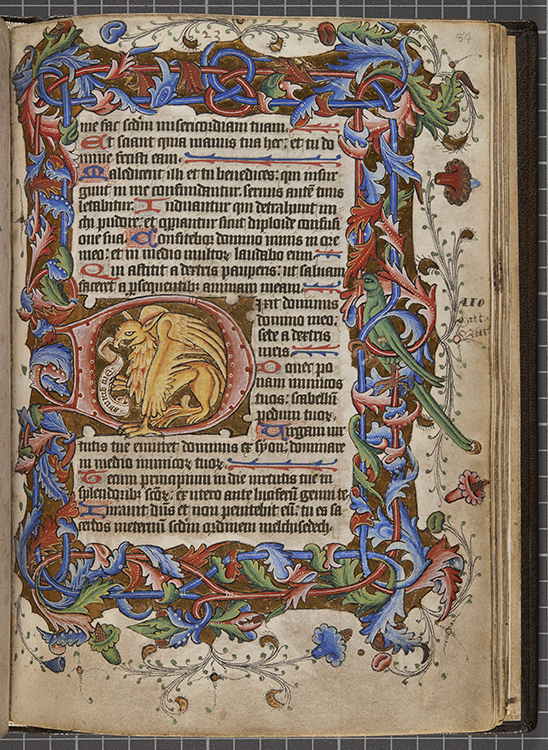 23
84
me fac scdm misericordiam tuam.
Et sciant quia manus tua hec: et tu do
mine fecisti eam.
Maledicent illi et tu benedices: qui insur
gunt in me confundantur: seruus autē tuus
letabitur. Induantur qui detrahunt mi
chi pudore: et operiantur sicut diploide confusi
one sua. Confitebor domino nimis in ore
meo: et in medio multorꝫ laudabo eum.
Qui astitit a dextris pauperis: ut saluam
faceret a ꝑsequentibꝫ animam meam.
Dixit dominus
domino meo:
sede a dextris
meis.
Donec po
nam inimicos
tuos: scabellū
pedum tuorꝫ.
Uirgam uir
tutis tue emittet dominus ex syon: dominare
in medio inimicorꝫ tuorꝫ.
Tecum principium in die uirtutis tue in
splendoribꝫ scōrꝫ: ex utero ante luciferū genui te
Iurauit dñs et non penitebit eū: tu es sa
cerdos in eternū scdm ordinem melchisedech.